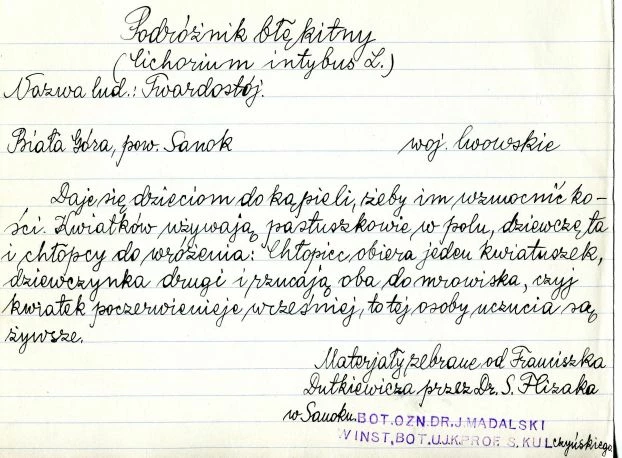 Podróżnik błękitny
(Cichorium intybus L.)
Nazwa lud.: Twardostój.
Biała Góra, pow. Sanok woj. lwowskie
Daje się dzieciom do kąpieli, żeby im wzmocnić ko-
ści. Kwiatków używają pastuszkowie w polu, dziewczęta
i chłopcy do wróżenia: Chłopiec obiera jeden kwiatuszek,
dziewczynka drugi i rzucają oba do mrowiska, czyj
kwiatek poczerwienieje wcześniej, to tej osoby uczucia są
żywsze.
Materjały zebrane od Franciszka
Dutkiewicza przez Dr. S. Flizaka
w Sanoku.
BOT. OZN. DR. J. MĄDALSKI
W INST. BOT. U.J.K. PROF. S. KULczyńskiego